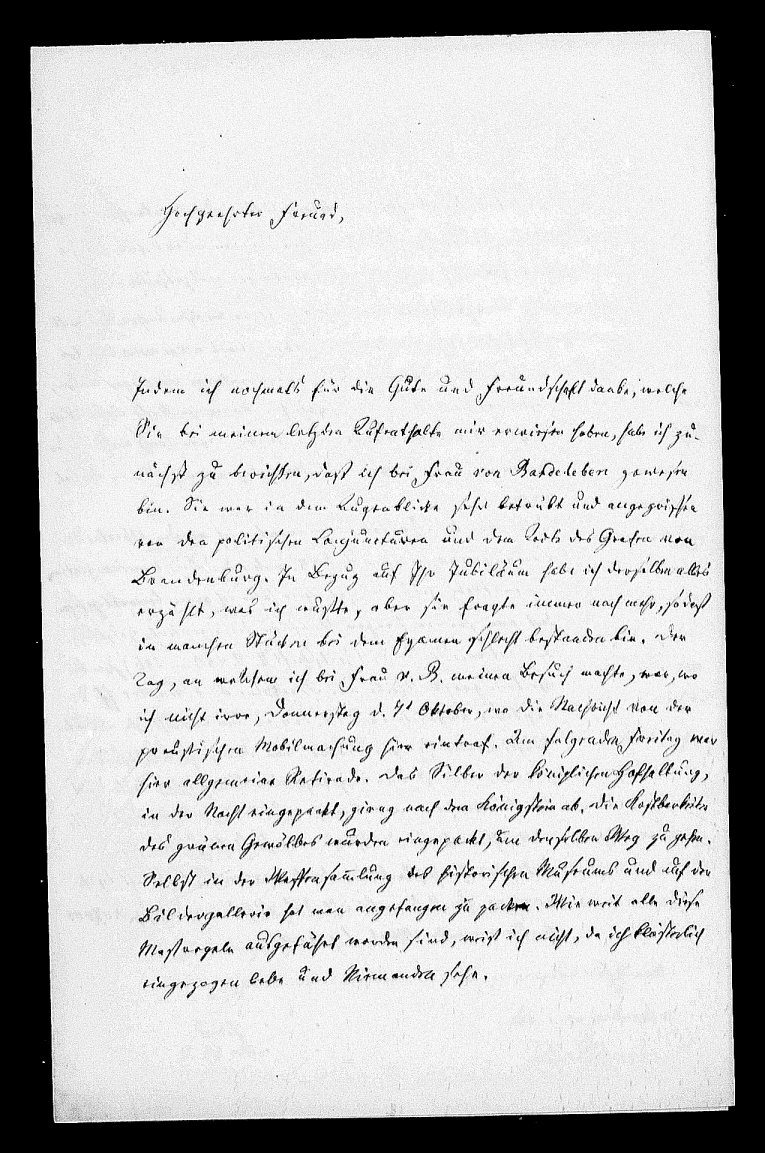 Hochgeehrter Freund,
Indem ich nochmals für die Güte und Freundschaft danke, welche
Sie bei meinem letzten Aufenthalte mir erwiesen haben, habe ich zu-
nächst zu berichten, daß ich bei Frau von Bardeleben gewesen
bin. Sie war in dem Augenblicke sehr betrübt und angegriffen
von den politischen Conjuncturen und dem Tode des Grafen von
Brandenburg. In Bezug auf Ihr Jubiläum habe ich derselben alles
erzählt, was ich wußte, aber sie fragte immer noch mehr, so daß
in manchen Stücken bei dem Examen schlecht bestanden bin. Der
Tag, an welchem ich bei Frau v. B. meinen Besuch machte, war, wo
ich nicht irre, Donnerstag d. 7t Oktober, wo die Nachricht von der
preußischen Mobilmachung hier eintraf. Am folgenden Freitag war
hier allgemeine Retirade. Das Silber der königlichen Hofhaltung,
in der Nacht eingepackt, gieng nach dem Königstein ab. Die Kostbarkeiten
des grünen Gewölbes wurden eingepackt, um denselben Weg zu gehen.
Selbst in der Waffensammlung des historischen Museums und auf der
Bildergallerie hat man angefangen zu packen. Wie weit alle diese
Maßregeln ausgeführt worden sind, weiß ich nicht, da ich klösterlich
eingezogen lebe und Niemanden sehe.